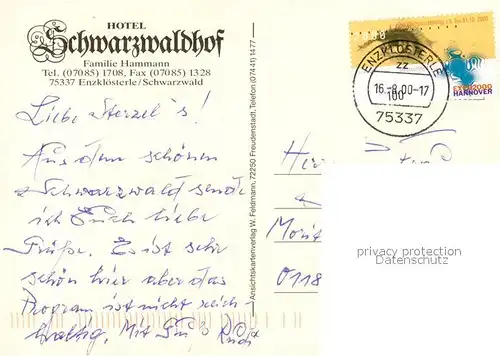 HOTEL
Schwarzwaldhof
Familie Hammann
Tel. (07085) 1708, Fax (07085) 1328
75337 Enzklösterle/Schwarzwald
Liebe Sterzel's!
Aus dem schönen
Schwarzwald sende
ich Euch liebe
Grüße. Es ist sehr
schön hier aber das
Program ist nicht reich-
haltig. Mit
Ansichtskartenverlag W. Feldmann, 72250 Freudenstadt, Telefon (07441) 1477
ENZKLÖSTERLE
zz
16.-8.00-17
100
75337
EXPO2000
HANNOVER
Moritz
0118
privacy protection
Datenschutz